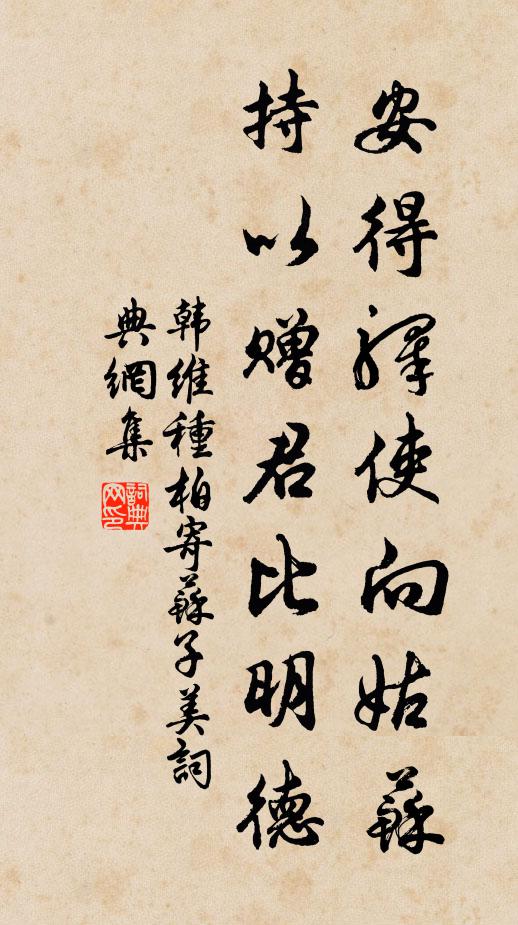 安得驛使向姑蘇
持以贈君比明德
韩維種柏寄蘇子美詞
典網集
詞典网印